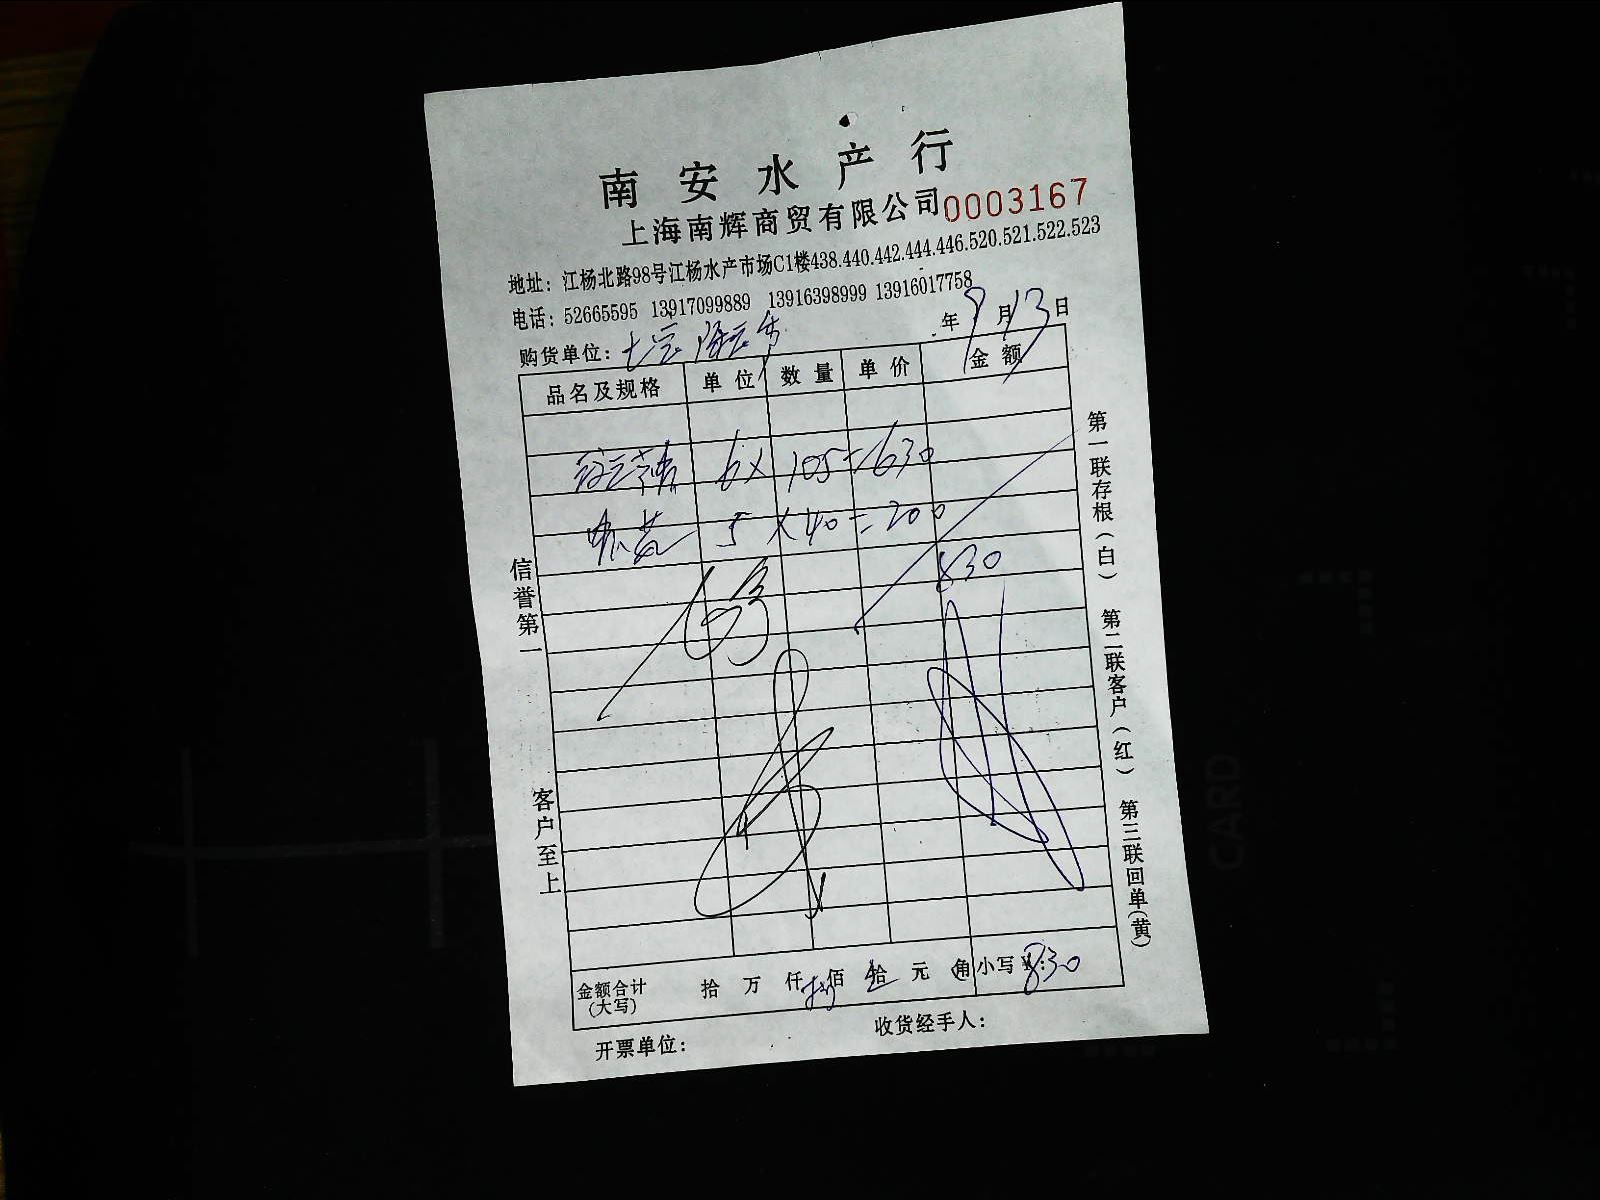 南安水产行
上海南辉商贸有限公司 0003167
地址：江杨北路98号江杨水产市场C1楼438.440.442.444.446.520.521.522.523
电话：52665595 13917099889 13916398999 13916017758
年9月13日
购货单位：
品名及规格 单位 数量 单价 金额
6 × 105 = 630
5 × 40 = 200
830
金额合计（大写） 拾 万 仟 佰 拾 元 角 小写¥：830
开票单位： 收货经手人：
信誉第一
客户至上
第一联存根（白） 第二联客户（红） 第三联回单（黄）
CARD